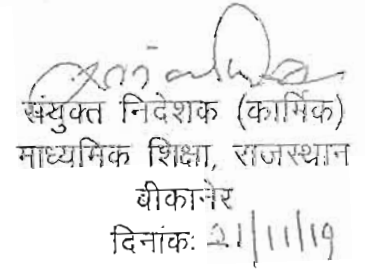 संयुक्त निदेशक (कार्मिक)
माध्यमिक शिक्षा, राजस्थान
बीकानेर
दिनांक: 21/11/19